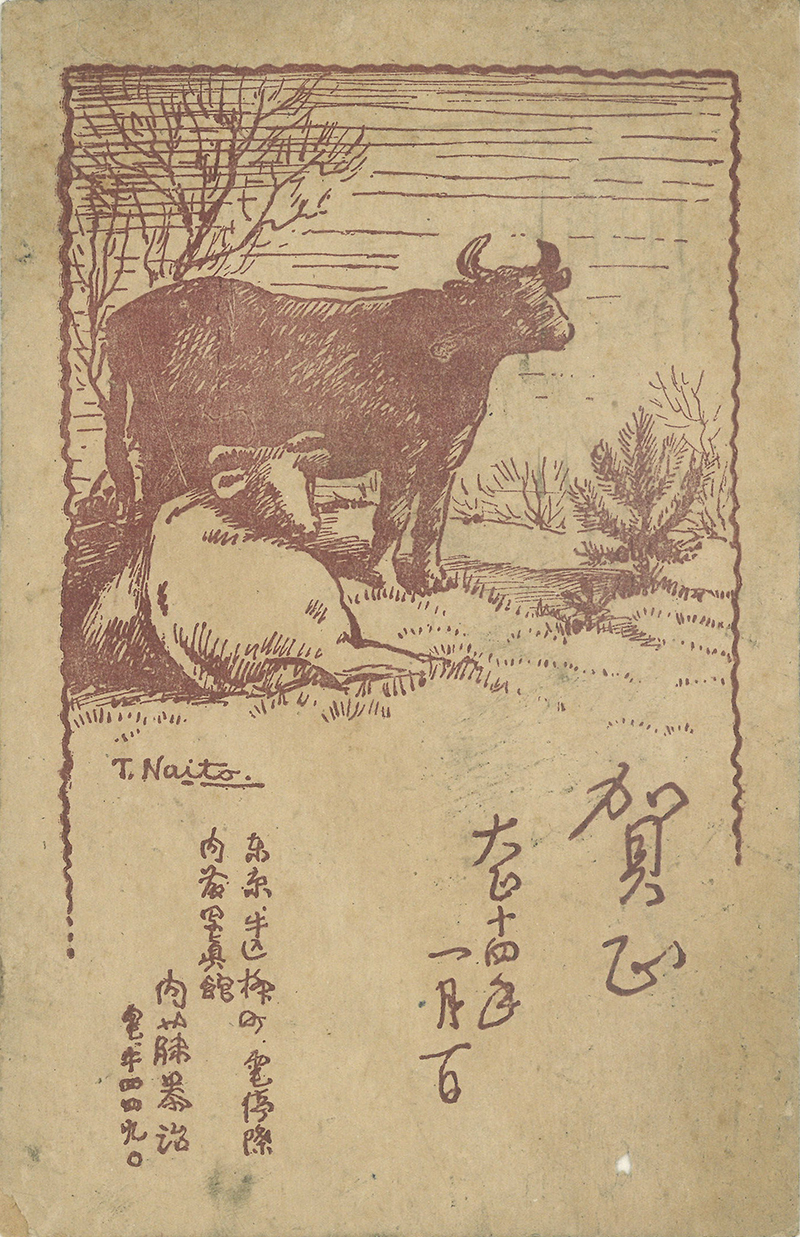 賀正
大正十四年
一月一日
東京牛込柳町電停際
内藤写真館
内藤恭治
電牛四四九〇
T. Naito.